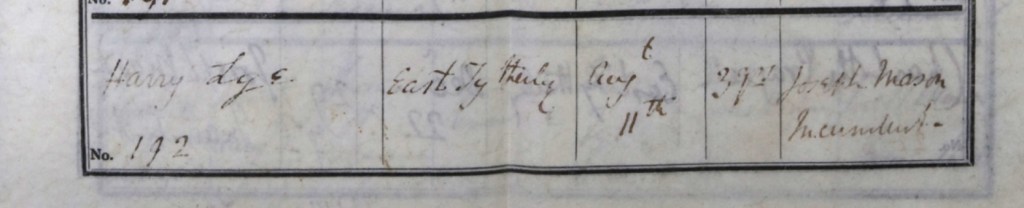 Harry Lye
East Tytherly
Augt
11th
Joseph Mason
Incumbent
No. 192